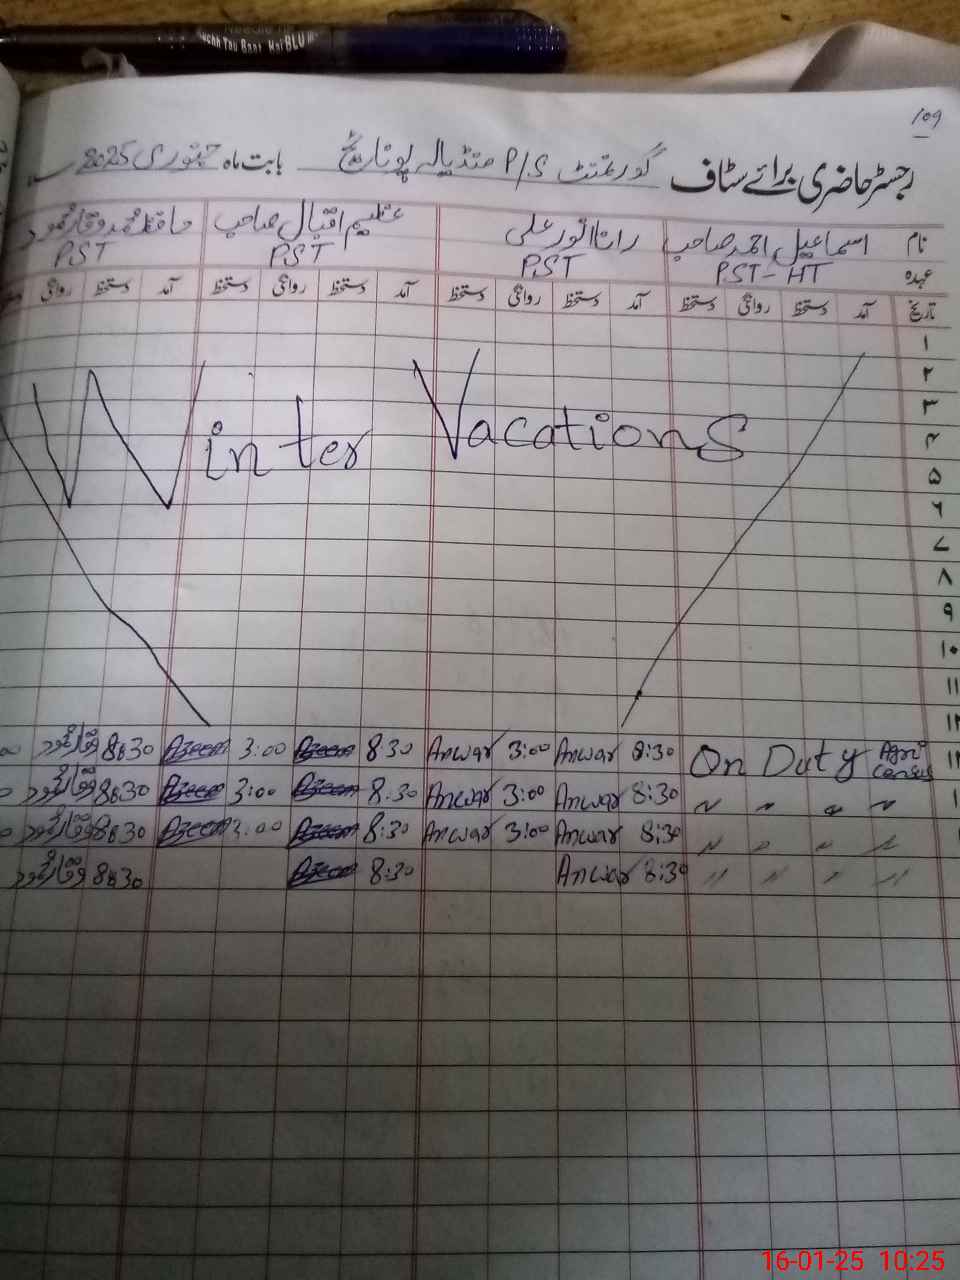 Needle
BLU
109
رجسٹر حاضری برائے سٹاف گورنمنٹ P/S منڈیالہ بابت ماہ جنوری 2025
نام اسماعیل احمد صاحب رانا انور علی عظیم اقبال صاحب حافظ محمد وقار محمود
عہدہ PST-HT PST PST PST
تاریخ آمد دستخط روانگی دستخط آمد دستخط روانگی دستخط آمد دستخط روانگی دستخط آمد دستخط روانگی
۱
۲
۳
۴
۵
۶
۷
۸
۹
۱۰
۱۱
۱۲
Winter Vacations
On Duty Agri census 8:30 Anwar 3:00 Anwar 8:30 Azeem 3:00 Azeem 8:30 وقار محمود
〃 〃 〃 〃 8:30 Anwar 3:00 Anwar 8:30 Azeem 3:00 Azeem 8:30 وقار محمود
〃 〃 〃 〃 8:30 Anwar 3:00 Anwar 8:30 Azeem 3:00 Azeem 8:30 وقار محمود
〃 〃 〃 〃 8:30 Anwar 8:30 Azeem 8:30 وقار محمود
16-01-25 10:25